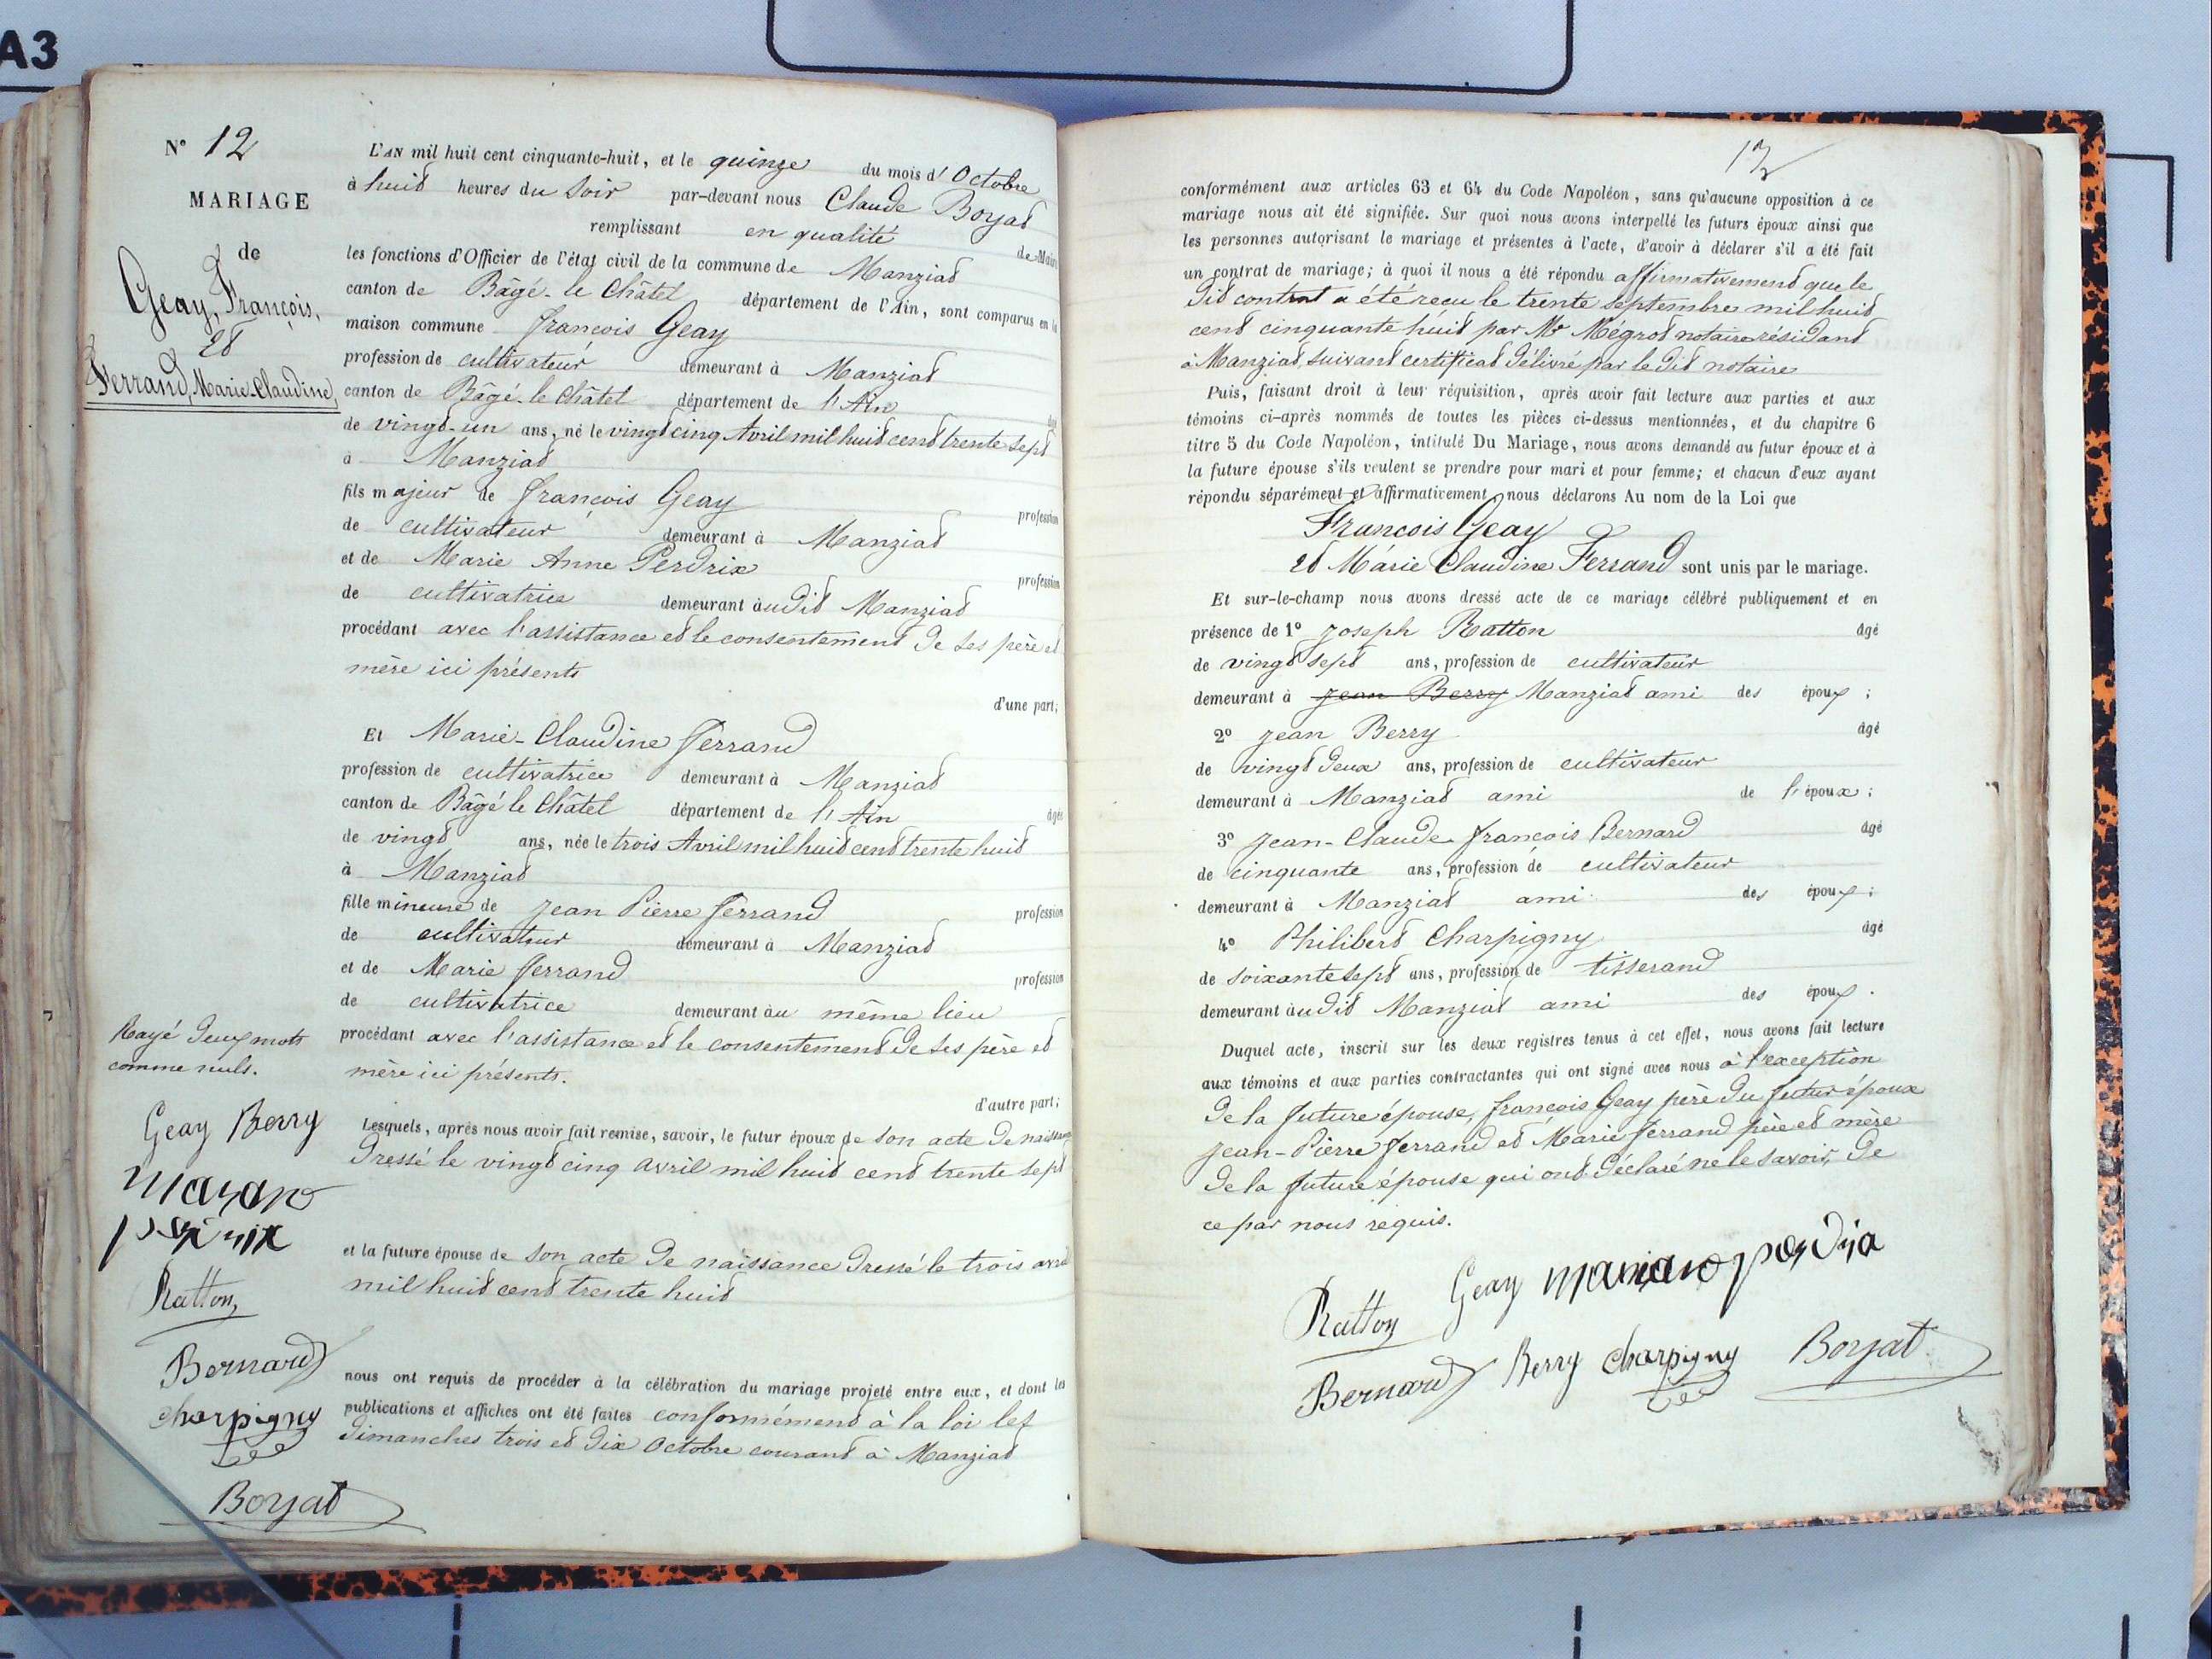 A3
N° 12
MARIAGE
de
Geay, François,
et
Ferrand, Marie-Claudine,
L'AN mil huit cent cinquante-huit, et le quinze du mois d'Octobre
à huit heures du Soir par-devant nous Claude Boyat
remplissant en qualité de Maire
les fonctions d'Officier de l'état civil de la commune de Manziat
canton de Bâgé-le Châtel département de l'Ain, sont comparus en la
maison commune françois Geay
profession de cultivateur demeurant à Manziat
canton de Bâgé-le Châtel département de l'Ain âgé
de vingt-un ans, né le vingt cinq Avril mil huit cent trente sept
à Manziat
fils majeur de françois Geay profession
de cultivateur demeurant à Manziat
et de Marie Anne Perdrix profession
de cultivatrice demeurant àudit Manziat
procédant avec l'assistance et le consentement de ses père et
mère ici présents
d'une part;
Et Marie-Claudine ferrand
profession de cultivatrice demeurant à Manziat
canton de Bâgé le Châtel département de l'Ain âgée
de vingt ans, née le trois Avril mil huit cent trente huit
à Manziat
fille mineure de Jean Pierre ferrand profession
de cultivateur demeurant à Manziat
et de Marie ferrand profession
de cultivatrice demeurant àu même lieu
procédant avec l'assistance et le consentement de ses père et
mère ici présents.
d'autre part;
Lesquels, après nous avoir fait remise, savoir, le futur époux de son acte de naissance
dressé le vingt cinq avril mil huit cent trente sept
et la future épouse de son acte de naissance dressé le trois avril
mil huit cent trente huit
nous ont requis de procéder à la célébration du mariage projeté entre eux, et dont les
publications et affiches ont été faites conformément à la loi les
dimanches trois et dix Octobre courant à Manziat
Rayé deux mots
comme nuls.
Geay Berry
Ratton
Bernard
Charpigny
Boyat
conformément aux articles 63 et 64 du Code Napoléon, sans qu'aucune opposition à ce
mariage nous ait été signifiée. Sur quoi nous avons interpellé les futurs époux ainsi que
les personnes autorisant le mariage et présentes à l'acte, d'avoir à déclarer s'il a été fait
un contrat de mariage; à quoi il nous a été répondu affirmativement que le
dit contrat a été reçu le trente septembre mil huit
cent cinquante huit par Mr Mégrot notaire résidant
à Manziat, suivant certificat délivré par le dit notaire
Puis, faisant droit à leur réquisition, après avoir fait lecture aux parties et aux
témoins ci-après nommés de toutes les pièces ci-dessus mentionnées, et du chapitre 6
titre 5 du Code Napoléon, intitulé Du Mariage, nous avons demandé au futur époux et à
la future épouse s'ils veulent se prendre pour mari et pour femme; et chacun d'eux ayant
répondu séparément et affirmativement, nous déclarons Au nom de la Loi que
François Geay
et Marie Claudine Ferrand sont unis par le mariage.
Et sur-le-champ nous avons dressé acte de ce mariage célébré publiquement et en
présence de 1° Joseph Ratton âgé
de vingt sept ans, profession de cultivateur
demeurant à Jean Berry Manziat ami des époux;
2° Jean Berry âgé
de vingt deux ans, profession de cultivateur
demeurant à Manziat ami de l'époux;
3° Jean-Claude françois Bernard âgé
de cinquante ans, profession de cultivateur
demeurant à Manziat ami des époux;
4° Philibert Charpigny âgé
de soixante sept ans, profession de tisserand
demeurant àudit Manziat ami des époux.
Duquel acte, inscrit sur les deux registres tenus à cet effet, nous avons fait lecture
aux témoins et aux parties contractantes qui ont signé avec nous à l'exception
de la future épouse, françois Geay père du futur époux
Jean-Pierre ferrand et Marie ferrand père et mère
de la future épouse qui ont déclaré ne le savoir, de
ce par nous requis.
Ratton Geay
Bernard Berry Charpigny Boyat